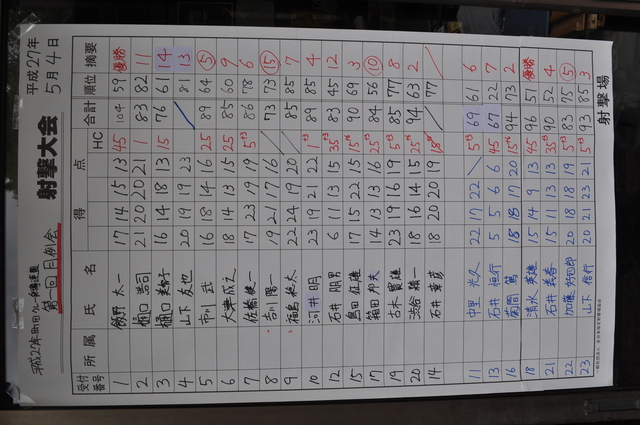 平成27年
5月4日
射撃大会
第一回月例会
射撃場
受付番号 所属 氏名 得点 HC 合計 順位 摘要
1 飯野 太一 17 14 15 13 45 104 59 優勝
2 樋口 浩司 21 20 20 21 1 83 82 11
3 樋口 16 14 18 13 15 76 61 14
4 山下 友也 20 19 19 23 13
5 市川 武 16 18 14 16 25 89 64 ⑤
6 大津 成之 18 14 13 15 25 85 60 9
7 佐橋 健一 17 23 19 19 5 86 78 6
8 吉川 陽一 19 21 17 16 73 73 ⑮
9 福島 22 24 19 20 85 85 7
10 河井 明 23 19 21 22 1 89 85 4
12 石井 朋男 6 11 13 15 35 83 45 12
15 島田 征雄 17 15 22 15 15 90 69 3
17 箱田 邦夫 14 13 13 16 25 84 56 ⑩
19 古木 實雄 23 19 16 19 5 85 77 8
20 渋谷 雄一 18 16 14 15 25 94 63 2
14 石井 章彦 18 20 20 19 77
11 中里 光久 22 17 22 5 69 61 6
13 石井 恒行 5 5 6 6 45 67 22 7
16 菊間 篤 18 18 17 20 15 94 73 2
18 清水 英雄 15 14 9 13 45 96 51 優勝
21 石井 義春 15 11 13 13 35 90 52 4
22 加藤 20 18 18 19 5 83 75 ⑤
23 山下 信行 20 21 23 21 5 93 85 3